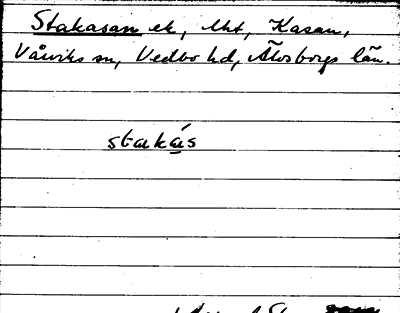 Stakasan ek, lht, Kasan,
Vårviks sn, Vedbo hd, Älvsborgs län.
stakás